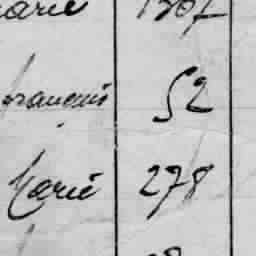 Marie 1307
François 52
Marie 278